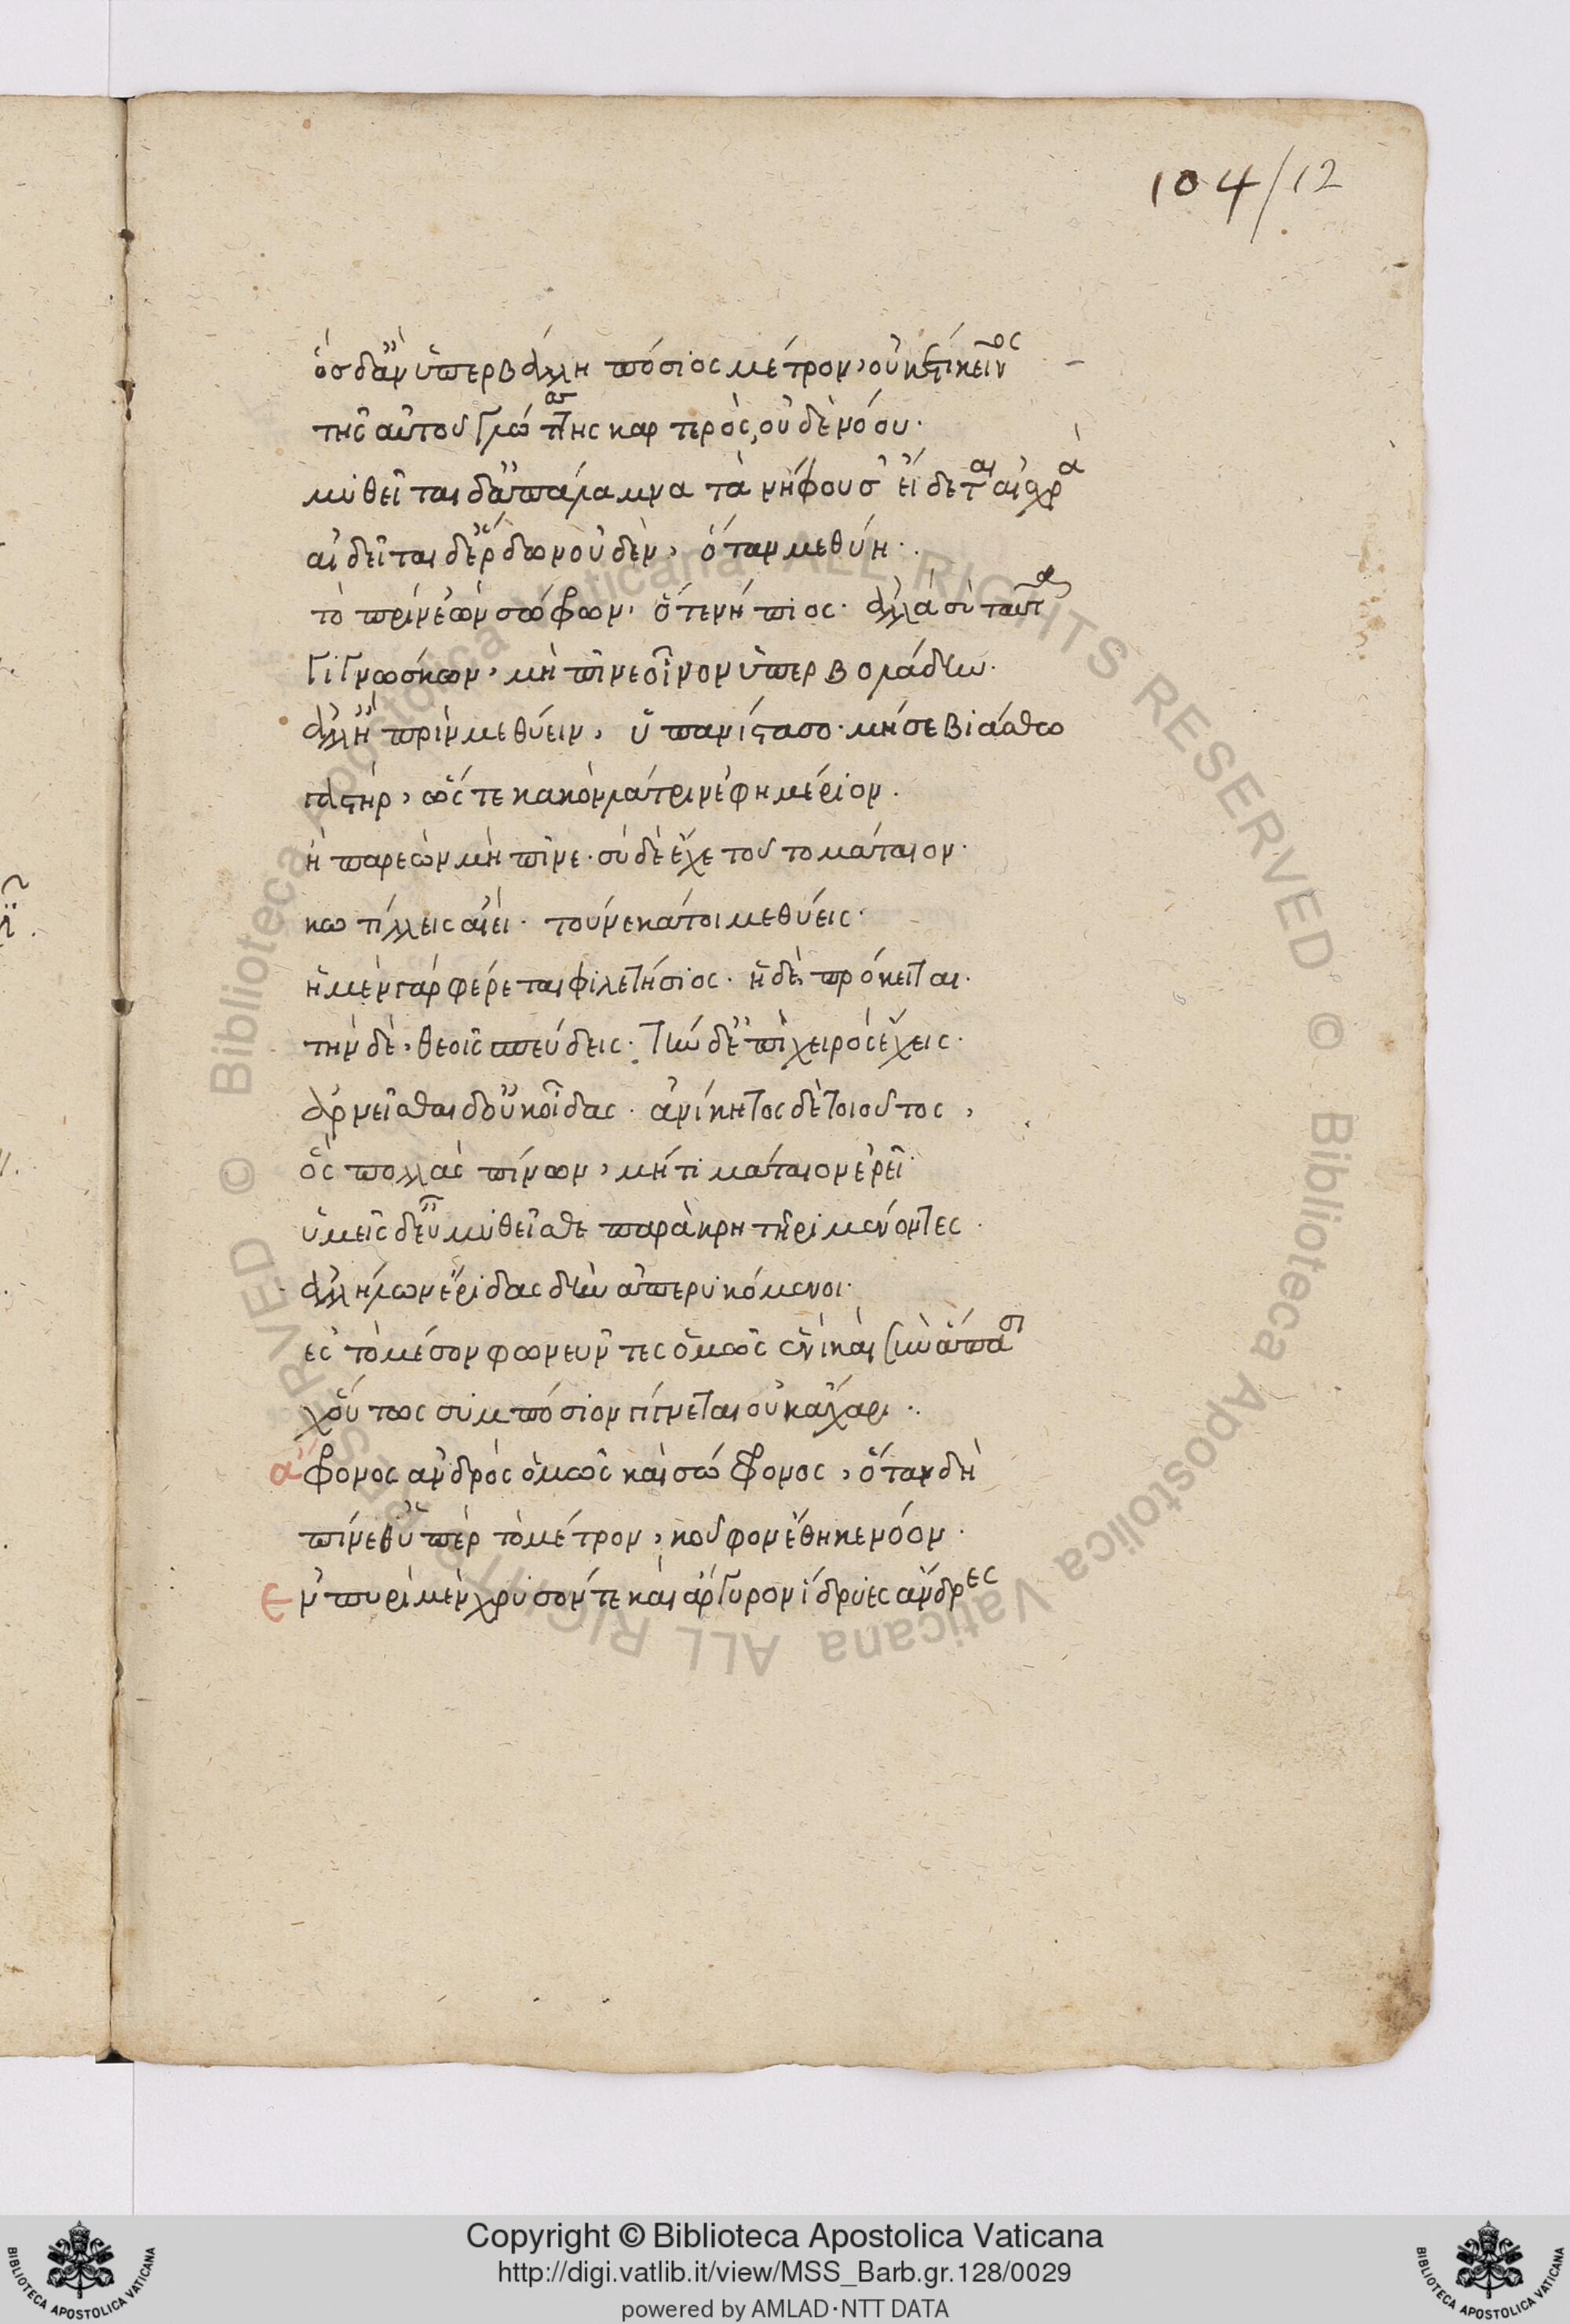 104/12
ὃς δ' ἂν ὑπερβάλλη πόσιος μέτρον, οὐκέτι κεῖνος
τῆς αὐτοῦ γλώττης καρτερὸς, οὐδὲ νόου.
μυθεῖται δ' ἀπάλαμνα τὰ νήφουσ' εἴδεται αἰσχρά
αἰδεῖται δ' ἔρδων οὐδὲν, ὅταν μεθύη.
τὸ πρὶν ἐὼν σώφρων, ὅτε νήπιος. ἀλλὰ σὺ ταῦτα
γιγνώσκων, μὴ πῖνε οἶνον ὑπερβολάδην.
ἀλλ' ἢ πρὶν μεθύειν, ὑπανίστασο. μή σε βιάσθω
γαστὴρ, ὥστε κακὸν λάτριν ἐφημέριον.
ἢ παρεὼν μὴ πῖνε. σὺ δὲ ἔχε τοῦτο μάταιον.
κωτίλλεις αἰεί. τοὔνεκά τοι μεθύεις.
ἡ μὲν γὰρ φέρεται φιλετήσιος. ἡ δὲ πρόκειται.
τὴν δὲ, θεοῖς σπεύδεις. τὴν δ' ἐπὶ χειρὸς ἔχεις.
ἀρνεῖσθαι δ' οὐκ οἶδας. ἀνίκητος δὲ τοιοῦτος,
ὃς πολλὰς πίνων, μή τι μάταιον ἐρεῖ.
ὑμεῖς δ' εὖ μυθεῖσθε παρὰ κρητῆρι μένοντες.
ἀλλήλων ἔριδας δὴν ἀπερυκόμενοι.
ἐς τὸ μέσον φωνεῦντες ὁμῶς ἑνὶ καὶ συνάπασι
χοὔτως συμπόσιον γίγνεται οὐκ ἄχαρι.
ἄφρονος ἀνδρὸς ὁμῶς καὶ σώφρονος, ὅταν δὴ
πίνεθ' ὑπὲρ τὸ μέτρον, κοῦφον ἔθηκε νόον.
ἐν πυρὶ μὲν χρυσόν τε καὶ ἄργυρον ἴδριες ἄνδρες
Copyright © Biblioteca Apostolica Vaticana
http://digi.vatlib.it/view/MSS_Barb.gr.128/0029
powered by AMLAD·NTT DATA